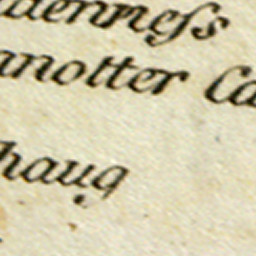 denneſs
anotter Ca
haug